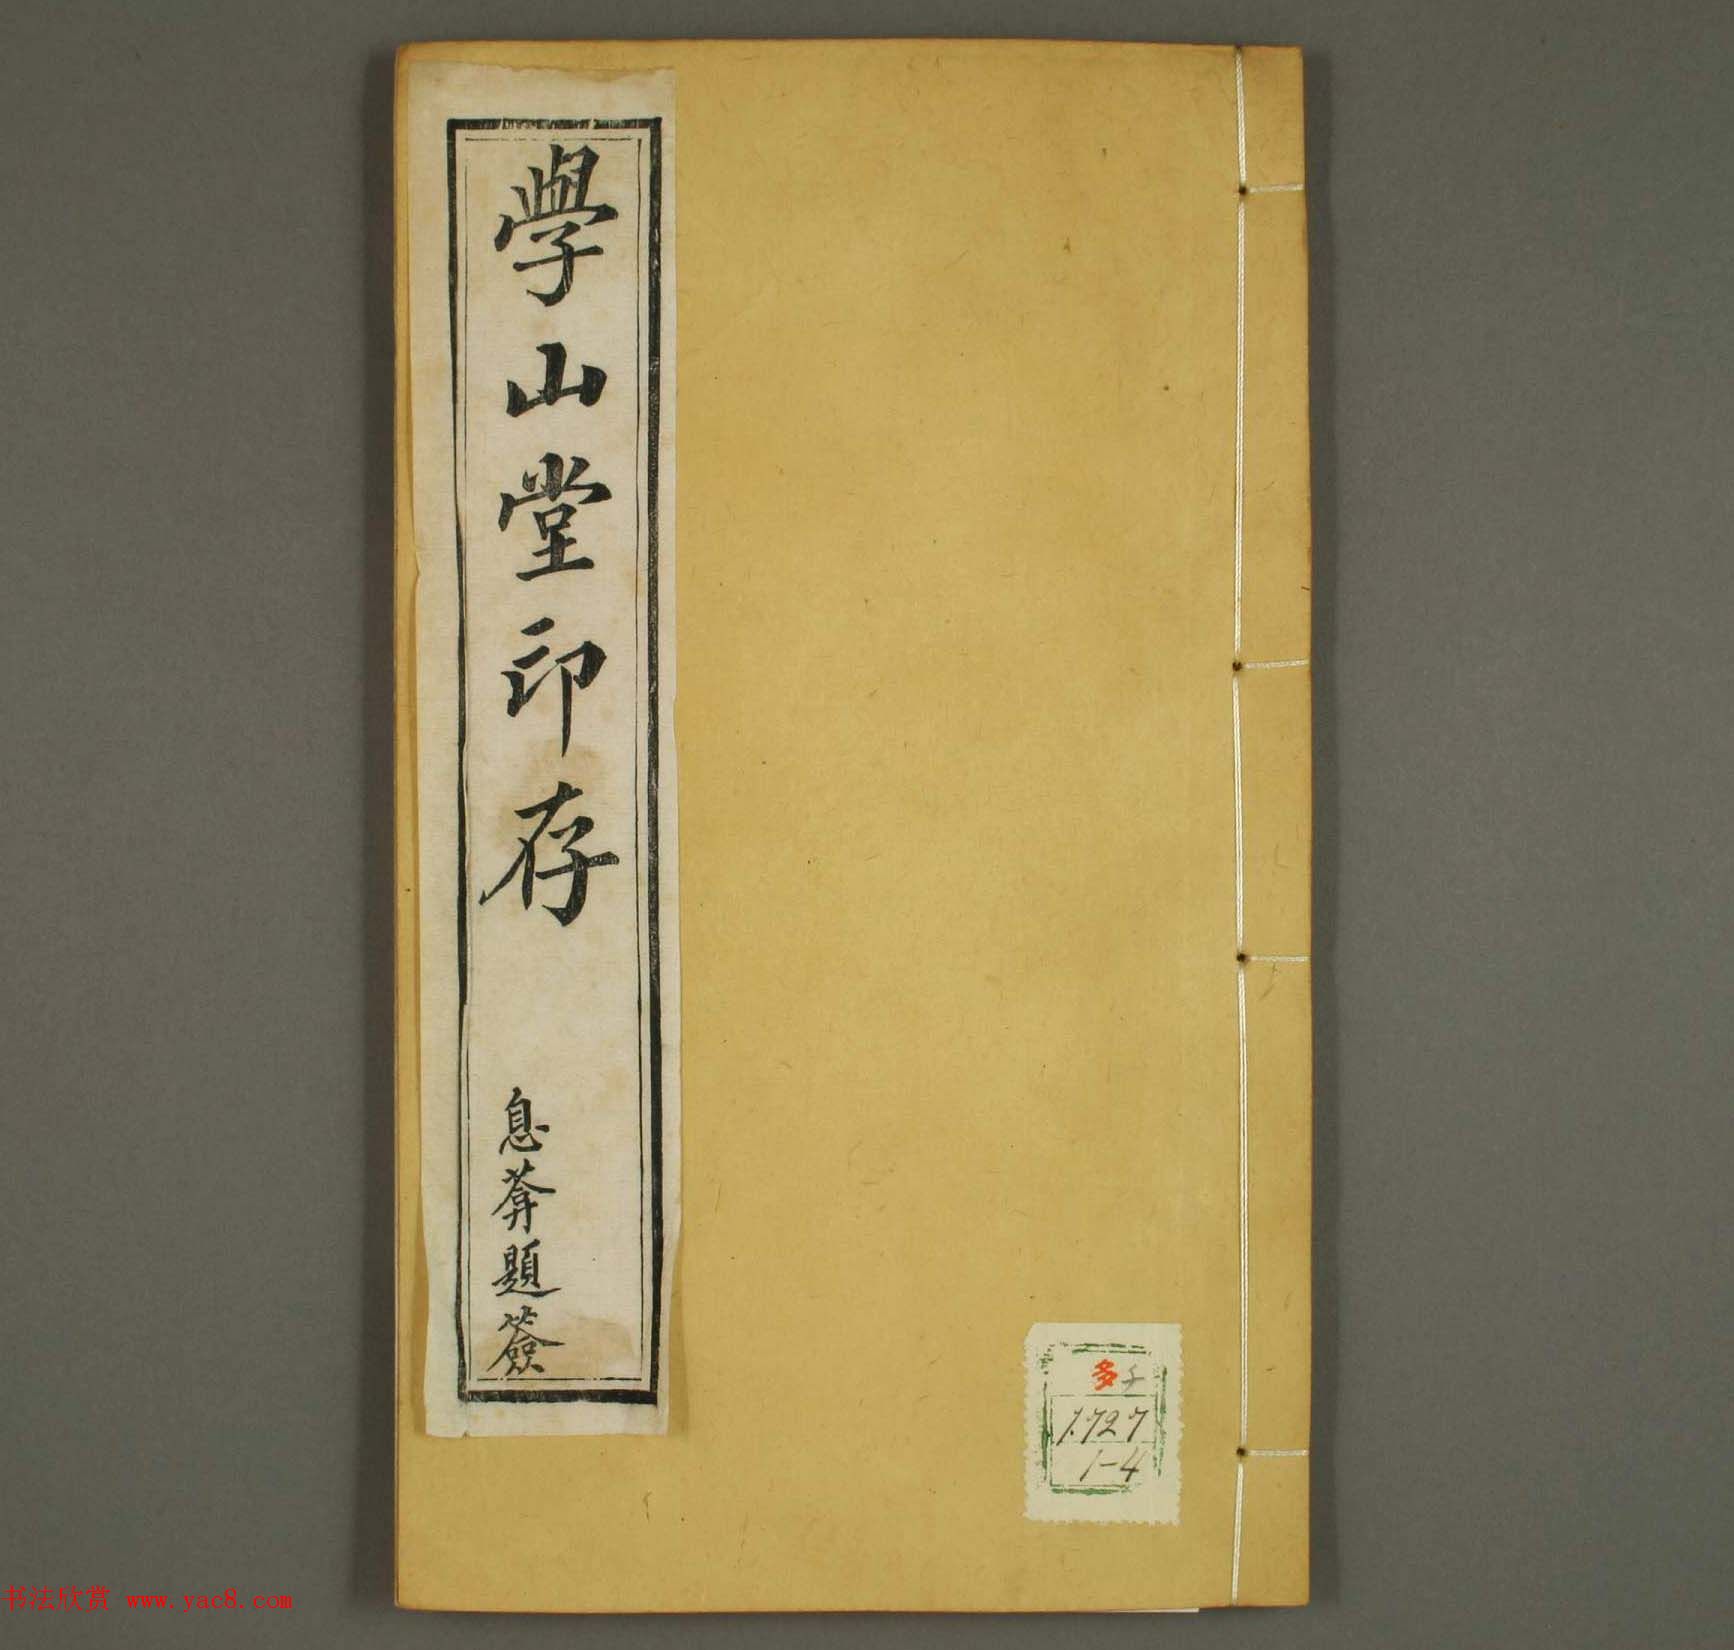 學山堂印存
息葊題簽
多千
1.727
1-4
书法欣赏 www.yac8.com